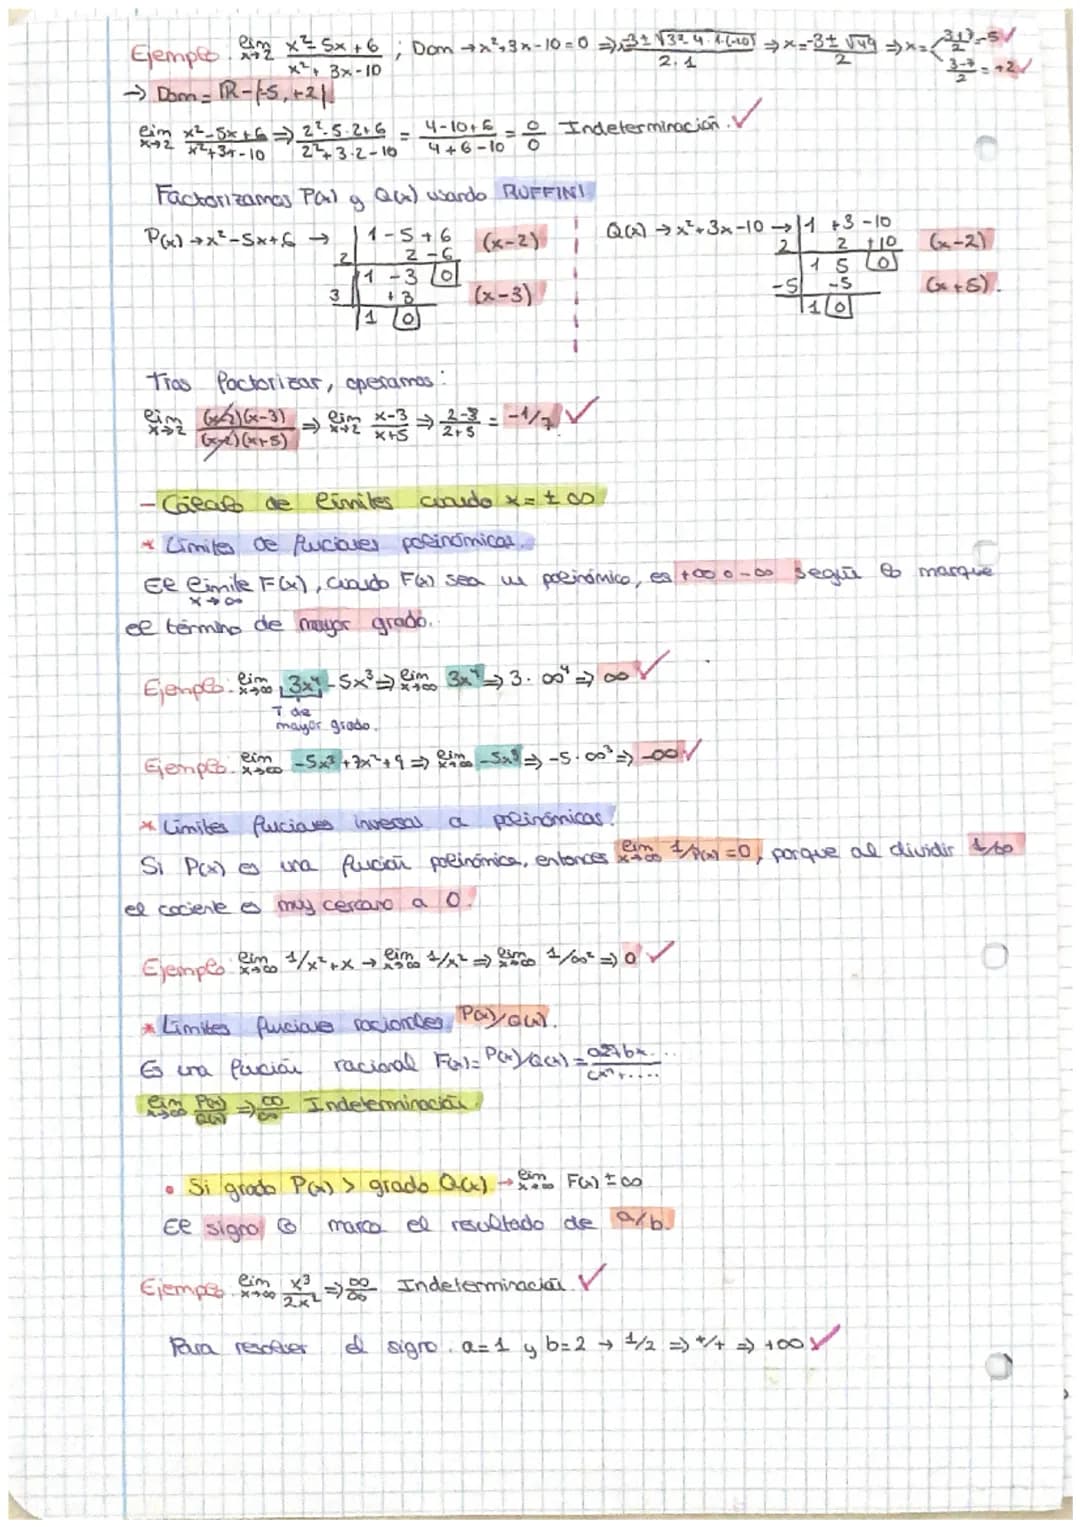 Ejemplo. lim x→2 x²-5x+6 / x²+3x-10 ; Dom → x²+3x-10=0 ⇒ -3±√3²-4·1·(-10) / 2·1 ⇒ x = -3±√49 / 2 ⇒ x = 3+7/2 = -5 ✓ 3-7/2 = +2 ✓
→ Dom = ℝ-{-5,+2}.
lim x→2 x²-5x+6 / x²+3x-10 ⇒ 2²-5·2+6 / 2²+3·2-10 = 4-10+6 / 4+6-10 = 0/0 Indeterminación. ✓
Factorizamos P(x) y Q(x) usando RUFFINI
P(x) → x²-5x+6 → 1 -5 +6 (x-2)
2 2 -6
1 -3 0
3 +3 (x-3)
1 0
Q(x) → x²+3x-10 → 1 +3 -10
2 2 +10 (x-2)
1 5 0
-5 -5 (x+5).
1 0
Tras factorizar, operamos:
lim x→2 (x-2)(x-3) / (x-2)(x+5) ⇒ lim x→2 x-3 / x+5 ⇒ 2-3 / 2+5 = -1/7 ✓
- Cálculo de límites cuando x = ±∞
* Límites de funciones polinómicas.
El límite F(x), cuando F(x) sea un polinómico, es +∞ o -∞ según lo marque
x→∞
el término de mayor grado.
Ejemplo. lim x→∞ 3x⁴-5x³ ⇒ lim x→∞ 3x⁴ ⇒ 3·∞⁴ ⇒ ∞ ✓
T de
mayor grado.
Ejemplo. lim x→∞ -5x³+7x²+9 ⇒ lim x→∞ -5x³ ⇒ -5·∞³ ⇒ -∞ ✓
* Límites funciones inversas a polinómicas.
Si P(x) es una función polinómica, entonces lim x→∞ 1/P(x) = 0, porque al dividir 1/∞
el cociente es muy cercano a 0.
Ejemplo lim x→∞ 1/x²+x → lim x→∞ 1/x² ⇒ lim x→∞ 1/∞² ⇒ 0 ✓
* Límites funciones racionales P(x)/Q(x).
Es una función racional F(x) = P(x)/Q(x) =
lim x→∞ P(x)/Q(x) ⇒ ∞/∞ Indeterminación.
• Si grado P(x) > grado Q(x) → lim x→∞ F(x) ±∞
El signo lo marca el resultado de a/b.
Ejemplo. lim x→∞ x³/2x² ⇒ ∞/∞ Indeterminación. ✓
Para resolver el signo. a=1 y b=2 → 1/2 ⇒ +/+ ⇒ +∞ ✓